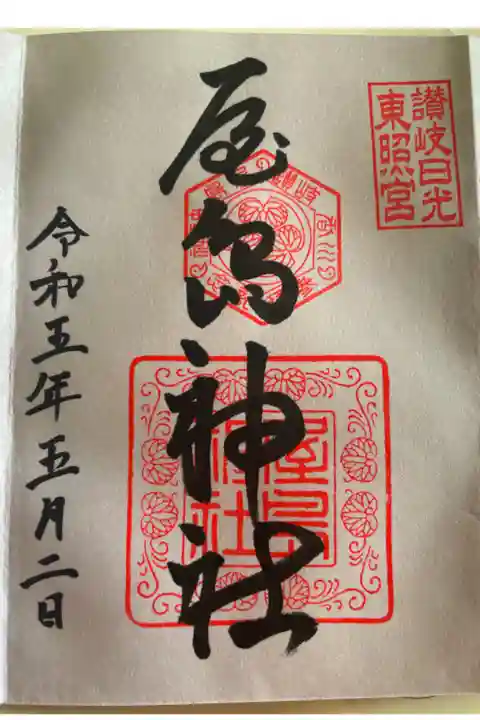 讃岐日光
東照宮
屋島神社
屋島
神社
令和五年五月二日